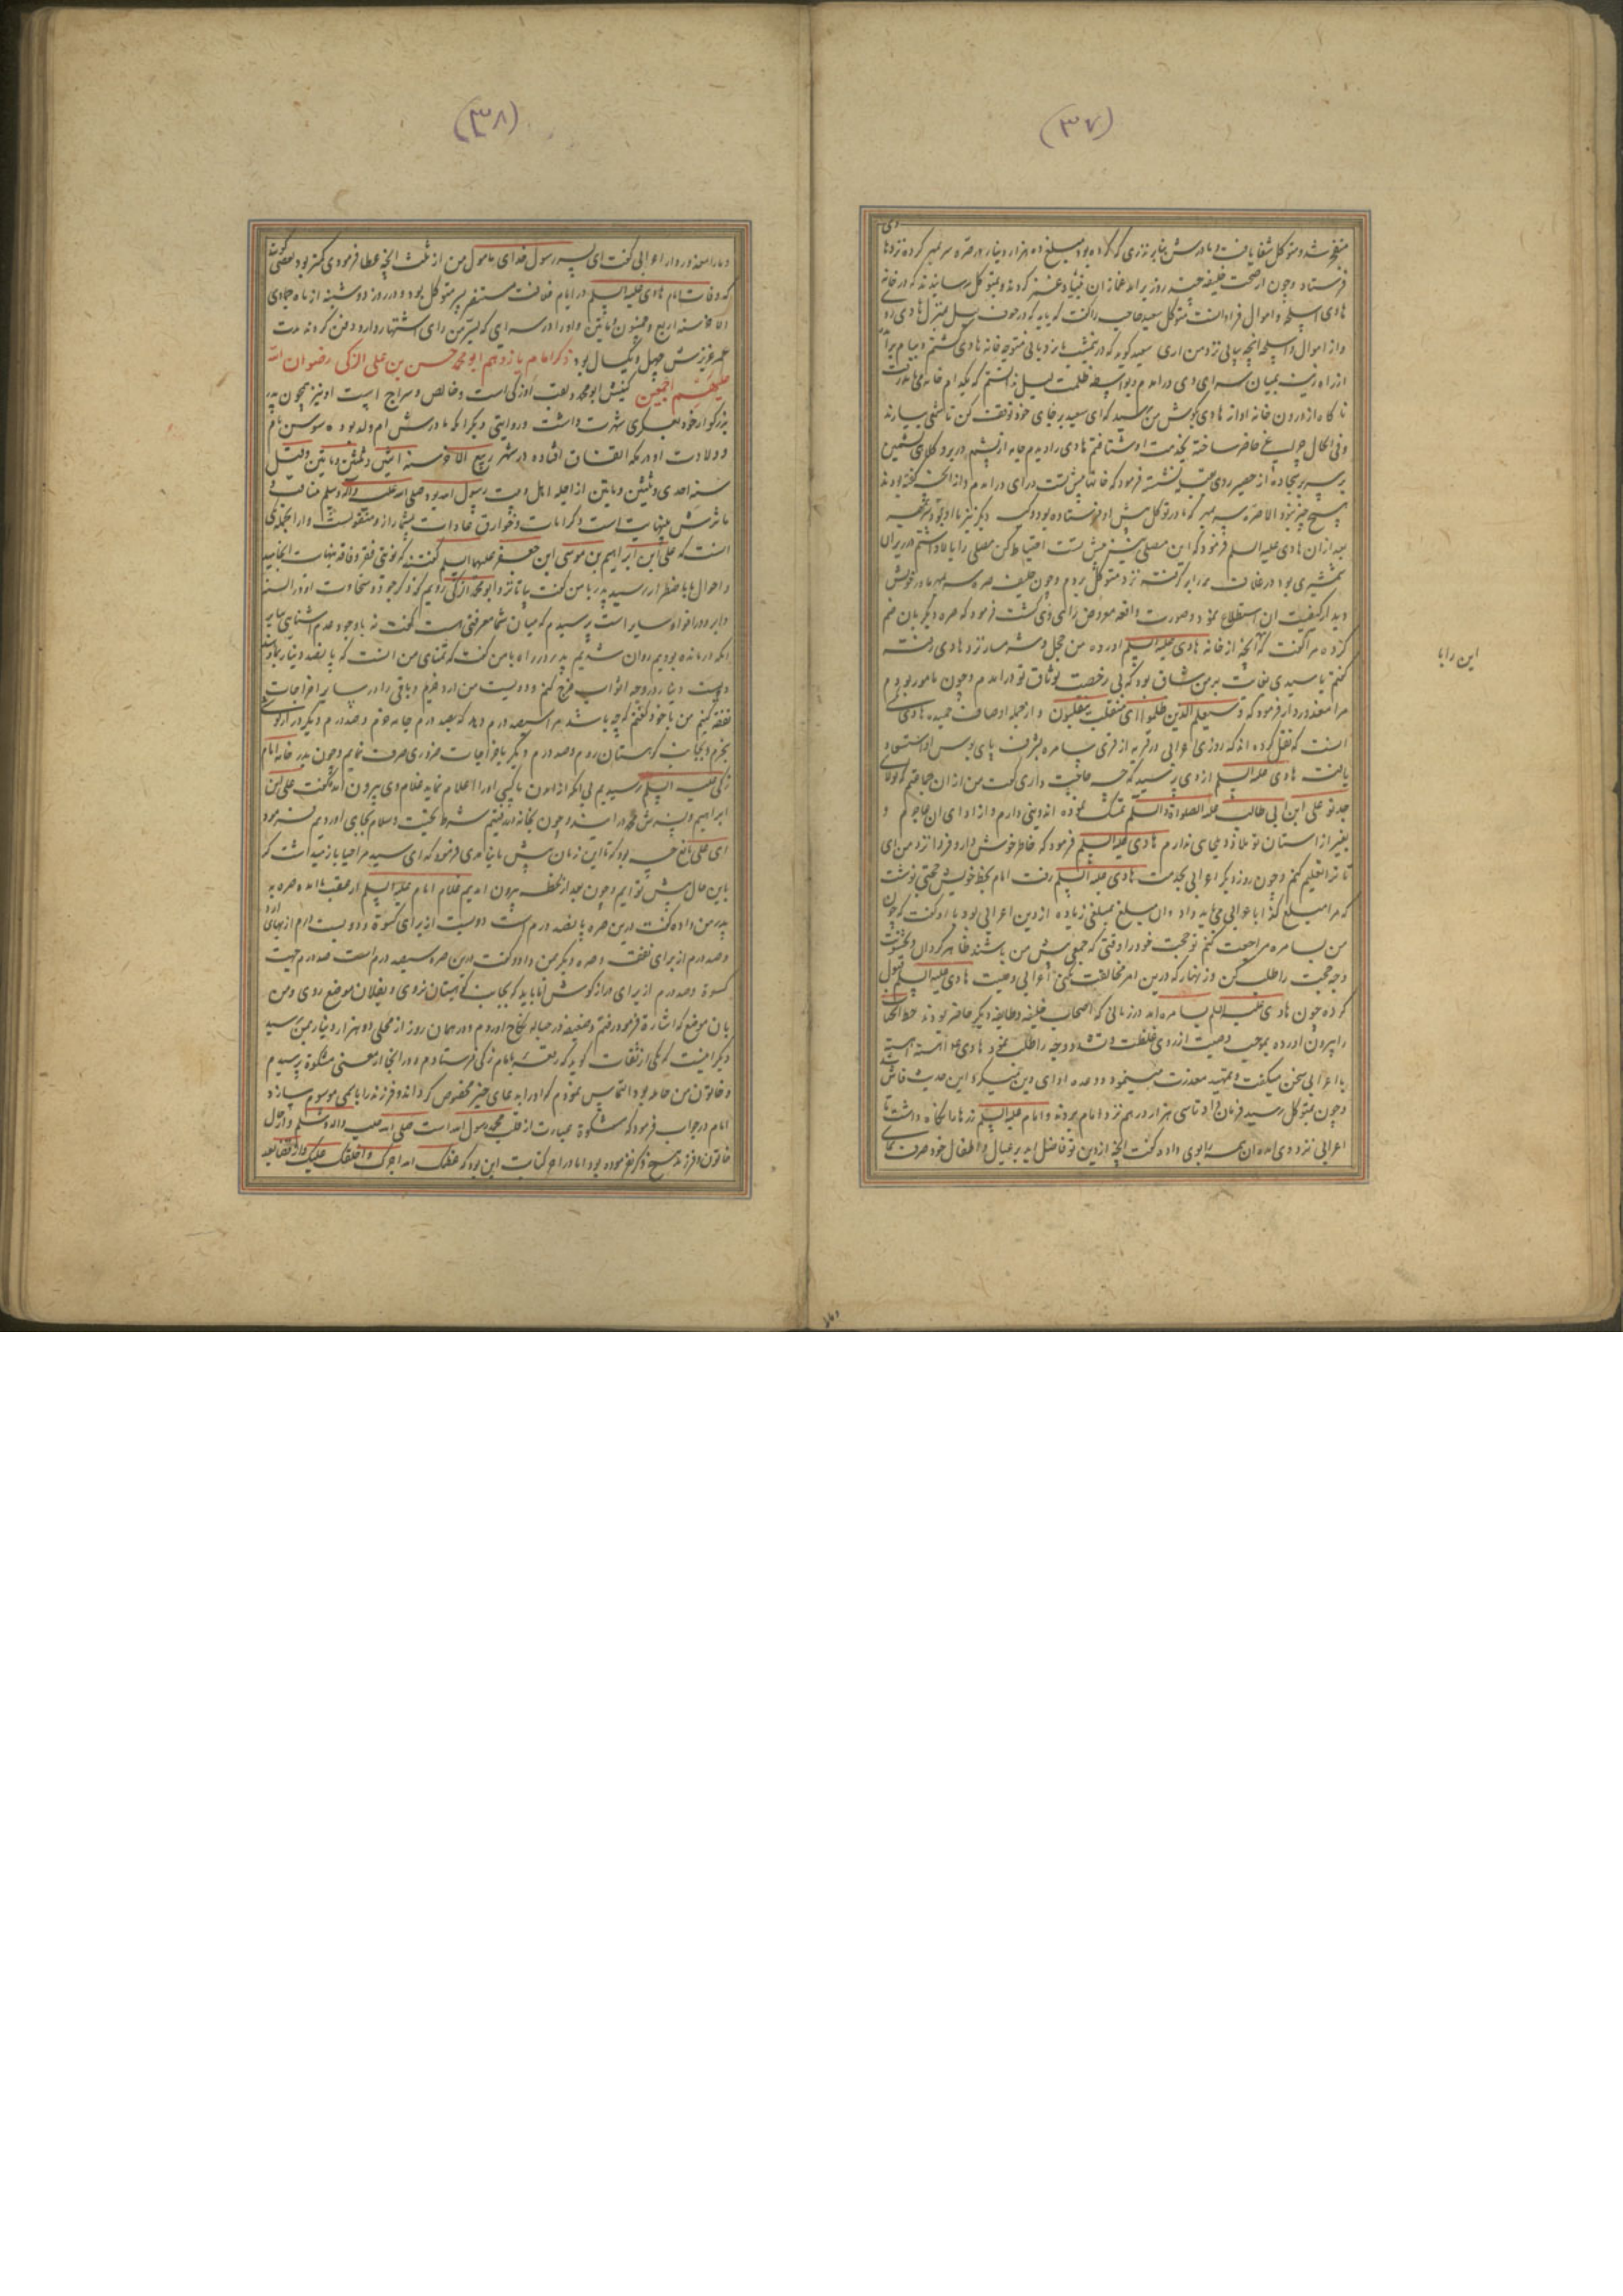 (۳۷)
منفجر شد و متوکل شفا یافت و مادرش بنابر نذری که کرده بود مبلغ ده هزار دینار در صره سر بمهر کرده نزد هادی
فرستاد و چون از صحت خلیفه چند روز برآمد غمازان
هادی اسلحه و اموال فراوانست متوکل سعید حاجب را گفت که باید که در جوف لیل بمنزل هادی روی
و از اموال و اسلحه آنچه بیابی نزد من آری سعید گوید که در نیمشب با نردبانی متوجه خانه هادی گشتم و ببام برآمده
از راه زینه بمیان سرای وی درآمدم و بواسطه ظلمت لیل ندانستم که بکدام خانه می باید رفت
ناگاه از درون خانه آواز هادی بگوش من رسید که ای سعید بر جای خود توقف کن تا شمعی بیارند
و فی الحال چراغی حاضر ساخته بخدمت او شتافتم هادی را دیدم جامه از پشم در بر و کلاهی پشمین
بر سر بر سجاده از حصیر روی بقبله نشسته فرمود که خانها پیش تست درآی درآمدم و از آنچه گفته بودند
هیچ چیز نبود الا صره سر بمهر که مادر متوکل پیش او فرستاده بود و یک دیگر نیز با او بود سر بمهر
بعد از آن هادی علیه السلم فرمود که این مصلی نیز پیش تست احتیاط کن مصلی را بالا داشتم در زیر آن
شمشیری بود در غلاف همه را برگرفته نزد متوکل بردم و چون خلیفه صره سر بمهر مادر خویش
دید از کیفیت آن استطلاع نمود و صورت واقعه معروض رای وی گشت فرمود که صره دیگر بآن ضم
کرده مرا گفت که آنچه از خانه هادی علیه السلم آورده من خجل و شرمسار نزد هادی رفته
گفتم یا سیدی بغایت بر من شاق بود که بی رخصت بوثاق تو درآمدم و چون مامور بودم
مرا معذور دار فرمود که و سیعلم الذین ظلموا ای منقلب ینقلبون و از جمله اوصاف حمیده هادی یکی
آنست که نقل کرده اند که روزی اعرابی در قریه از قری سامره بشرف پای بوس او استسعاد
یافت هادی علیه السلم از وی پرسید که چه حاجت داری گفت من از آن جماعتم که بولای
جد تو علی ابن ابی طالب علیه الصلوة والسلم تمسک نموده اند و دینی دارم و از ادای آن عاجزم و
بغیر از آستان تو ملاذ و ملجای ندارم هادی علیه السلم فرمود که خاطر خوش دار و فردا نزد من آی
تا ترا تعلیم کنم و چون روز دیگر اعرابی بخدمت هادی علیه السلم رفت امام بخط خویش حجتی نوشت
که مرا مبلغ کذا باعرابی می باید داد و آن مبلغ بمبلغی زیاده از دین اعرابی بود با او گفت که چون
من بسامره مراجعت کنم تو حجت خود را وقتی که جمعی پیش من باشند ظاهر گردان و بخشونت
وجه حجت را طلب کن و زنهار که درین امر مخالفت نکنی اعرابی وصیت هادی علیه السلم قبول
کرده چون هادی علیه السلم بسامره آمد در زمانی که اصحاب خلیفه و طایفه دیگر حاضر بودند خط آنجناب
را بیرون آورده بموجب وصیت از روی غلظت و شدت وجه را طلب نمود هادی علیه آهسته آهسته
با اعرابی سخن میگفت و تمهید معذرت مینمود و وعده ادای دین میکرد این حدیث فاش شد
و چون بمتوکل رسید فرمان داد تا سی هزار درهم نزد امام بردند و امام علیه السلم زرها را نگاه داشت تا
اعرابی نزد وی آمد آن همه را بوی داده گفت آنچه از دین تو فاضل آید بر عیال و اطفال خود صرف نمای
این رابا
(۳۸)
و مارا معذور دار اعرابی گفت ای پسر رسول خدای مامول من از ثلث آنچه عطا فرمودی کمتر بود بعضی گویند
که وفات امام هادی علیه السلم در ایام خلافت مستنصر پسر متوکل بود و در روز دوشنبه از ماه جمادی
الآخر سنه اربع و خمسین و مایتین و او را در سرای که بسر من رای اشتهار دارد دفن کردند مدت
عمر عزیزش چهل و یکسال بود ذکر امام یازدهم ابو محمد حسن بن علی الزکی رضوان الله
علیهم اجمعین کنیتش ابو محمد و لقب او زکی است و خالص و سراج است او نیز همچون پدر
بزرگوار خود بعسکری شهرت داشت و روایتی دیگر آنکه مادرش ام ولد بوده سوسن نام
و ولادت او در مدینه اتفاق افتاده در شهر ربیع الآخر سنه اثنی و ثلثین و مایتین و قیل
سنه احدی و ثلثین و مایتین از اجله اهل بیت رسول الله بود صلی الله علیه وآله وسلم مناقب و
ماثرش بینهایت است و کرامات و خوارق عادات بیشمار ازو منقولست و از آنجمله یکی
آنست که علی ابن ابراهیم بن موسی ابن جعفر علیهما السلم گفتند که نوبتی فقر و فاقه بنهایت انجامید
و احوال ما باضطرار رسید پدر با من گفت بیا تا نزد ابو محمد زکی رویم که ذکر جود و سخاوت او در السنه
دایر و در افواه سایر است پرسیدم که میان شما معرفتی هست گفت نه با وجود عدم آشنایی بنابر
آنکه درمانده بودیم روان شدیم پدر در راه با من گفت که تمنای من آنست که پانصد دینار بما دهد
دویست دینار در وجه اثواب خرج کنم و دویست من آرد خرم و باقی را در سایر اخراجات
نفقه کنیم من با خود گفتم که چه باشد مرا سیصد درم دهد که بصد درم جامه خرم و صد درم دیگر دراز گوشی
بخرم و بجانب کوهستان روم و صد درم دیگر باخراجات ضروری صرف نمایم و چون بدر خانه امام
زکی علیه السلم رسیدیم بی آنکه از آمدن ما کسی او را اعلام نماید غلام وی بیرون آمد و گفت علی بن
ابراهیم و پسرش محمد درآیند و چون بخانه درآمدیم شرط تحیت و سلام بجای آوردیم فرمود
ای علی مانع چه بود که تا این زمان پیش ما نیامدی فرمود که ای سید مرا حیا باز میداشت که
باین حال پیش تو آیم و چون بعد از لحظه بیرون آمدیم غلام امام علیه السلم از عقب ما آمد صره به
پدر من داده گفت درین صره پانصد درم است دویست از برای کسوة و دویست درم از بهای آرد
و صد درم از برای نفقه و صره دیگر بمن داد و گفت درین صره سیصد درم است صد درم جهت
کسوة و صد درم از برای دراز گوش اما باید که بجانب کوهستان نروی و بفلان موضع روی و من
بآن موضع که اشارة فرمود رفتم و ضعیفه در حباله نکاح آوردم و در همان روز از محلی دو هزار دینار بمن رسید
دیگر آنست که یکی از ثقات گوید که رقعه بامام زکی فرستادم و در آنجا از معنی مشکوة پرسیدم
و خاتون من حامله بود التماس نمودم که او را بدعای خیر مخصوص گرداند و فرزند را باسمی موسوم سازد
امام در جواب فرمود که مشکوة عبارت از قلب محمد رسول الله است صلی الله علیه وآله وسلم و از حال
خاتون و فرزند هیچ ذکر نفرموده بود اما در آخر کتابت این بود که عظمک الله اجرک و اخلفک علیک و از قضا بعد